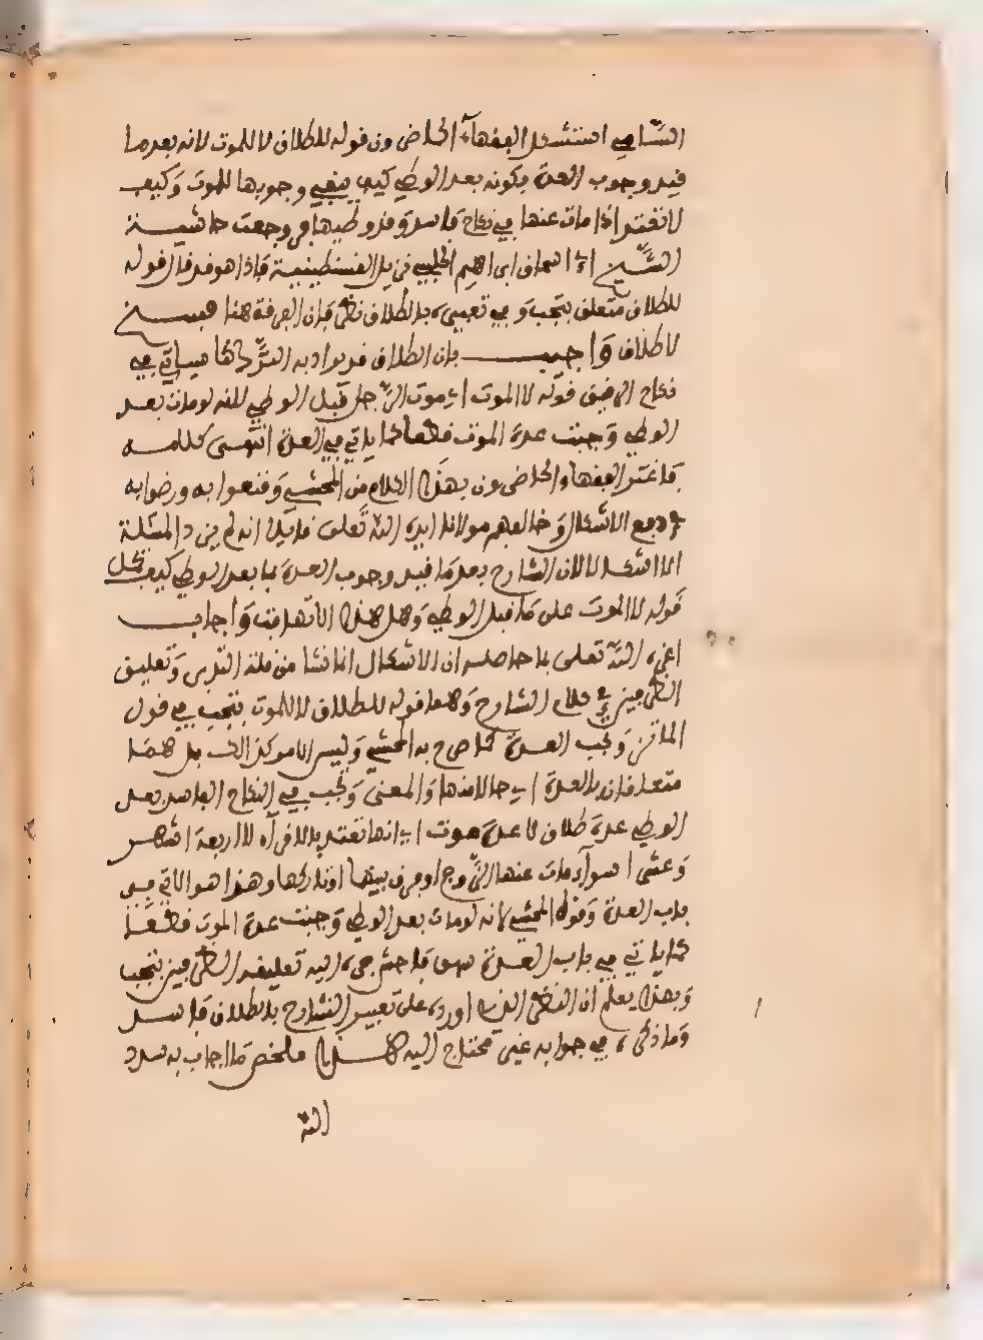 الشامي استشكل الفقهاء الحاضرون قوله للطلاق لا للموت لانه بعدما
قيد وجوب العدة بكونه بعد الوطي كيف ينفي وجوبها للموت وكيف
لا تعتد اذا مات عنها في نكاح فاسد وقد وطيها فروجعت حاشية
الشيخ ابراهيم الحلبي نزيل القسطنطينية فاذا هو قد قال قوله
للطلاق متعلق بتجب وفي تعبيره بالطلاق نظر فان الفرقة هنا فسخ
لا طلاق واجيب بان الطلاق قد يراد به الترك كما سياتي في
نكاح الرقيق قوله لا الموت اي موت الرجل قبل الوطي لانه لو مات بعد
الوطي وجبت عدة الموت قطعا كما ياتي في العدة انتهى كلامه
فاغتر الفقهاء الحاضرون بهذا الكلام من المحشي وقنعوا به ورضوا به
في دفع الاشكال وخالفهم مولانا ايده الله تعلى قايلا انه لم يزد المسئلة
الا اشكالا لان الشارح بعدما قيد وجوب العدة بما بعد الوطي كيف يحمل
قوله لا الموت على ما قبل الوطي وهل هذا الا تهافت واجاب
اعزه الله تعلى بما حاصله ان الاشكال انما نشا من قلة التدبر وتعليق
الظرفين في كلام الشارح وهما قوله للطلاق لا للموت بتجب في قول
الماتن وتجب العدة كما صرح به المحشي وليس الامر كذالك بل هما
متعلقان بالعدة اي حالا منها والمعنى وتجب في النكاح الفاسد بعد
الوطي عدة طلاق لا عدة موت اي انها تعتد بالاقراء لا اربعة اشهر
وعشرا سواء مات عنها الزوج او فرق بينهما او تاركها وهذا هو الاتي في
باب العدة وقول المحشي لانه لو مات بعد الوطي وجبت عدة الموت قطعا
كما ياتي في باب العدة سهو فاحش جره اليه تعليقه الظرفين بتجب
وبهذا يعلم ان النظر الذي اورده على تعبير الشارح بالطلاق فاسد
وما ذكره في جوابه غير محتاج اليه هذا ملخص ما اجاب به سدد
الله